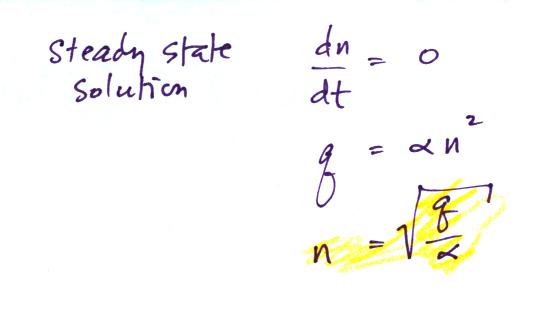 Steady state
Solution
dn/dt = 0
q = αn²
n = √(q/α)